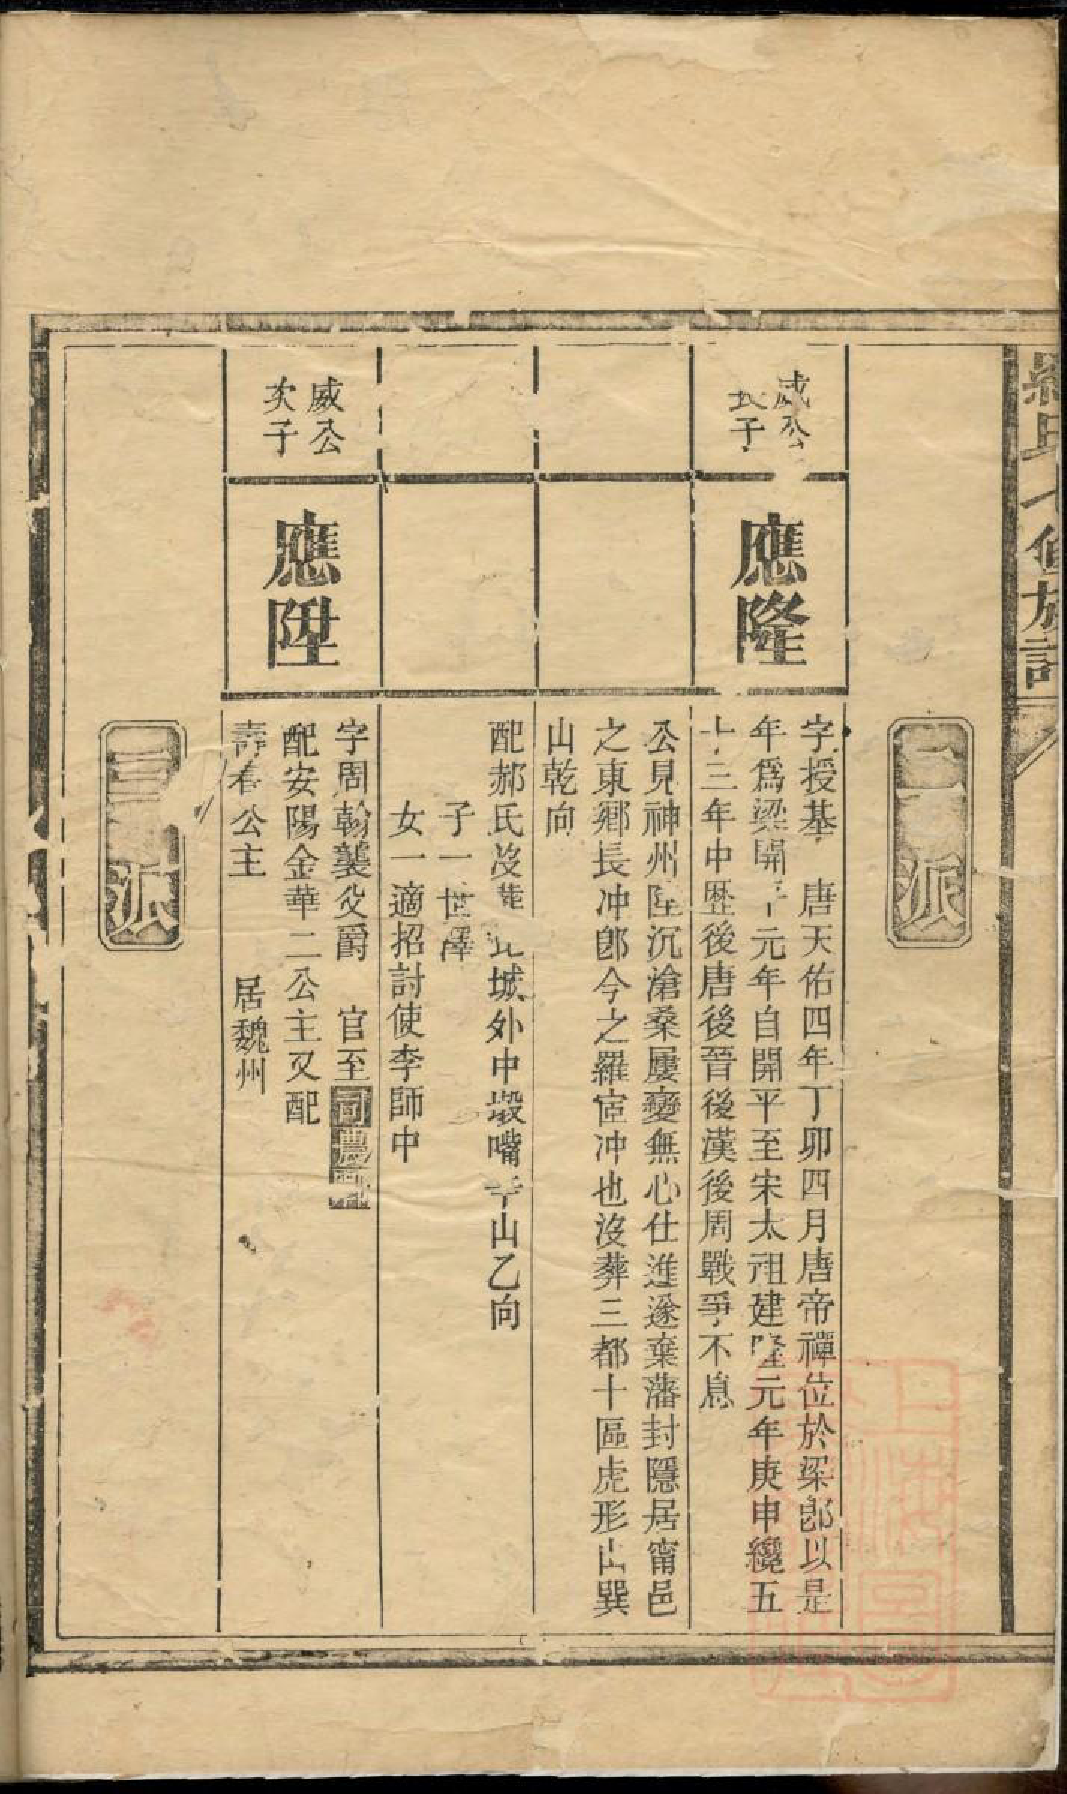 羅氏七修族譜
二 派
威公
長子
應隆
字授基 唐天佑四年丁卯四月唐帝禪位於梁卽以是
年爲梁開平元年自開平至宋太祖建隆元年庚申纔五
十三年中歷後唐後晉後漢後周戰爭不息
公見神州陸沉滄桑屢變無心仕進遂棄藩封隱居甯邑
之東鄉長冲卽今之羅宦冲也沒葬三都十區虎形山巽
山乾向
配郝氏沒葬 北城外中塅嘴辛山乙向
子一世澤
女一適招討使李師中
威公
次子
應陞
字周翰襲父爵 官至司農
配安陽金華二公主又配
壽春公主 居魏州
三 派